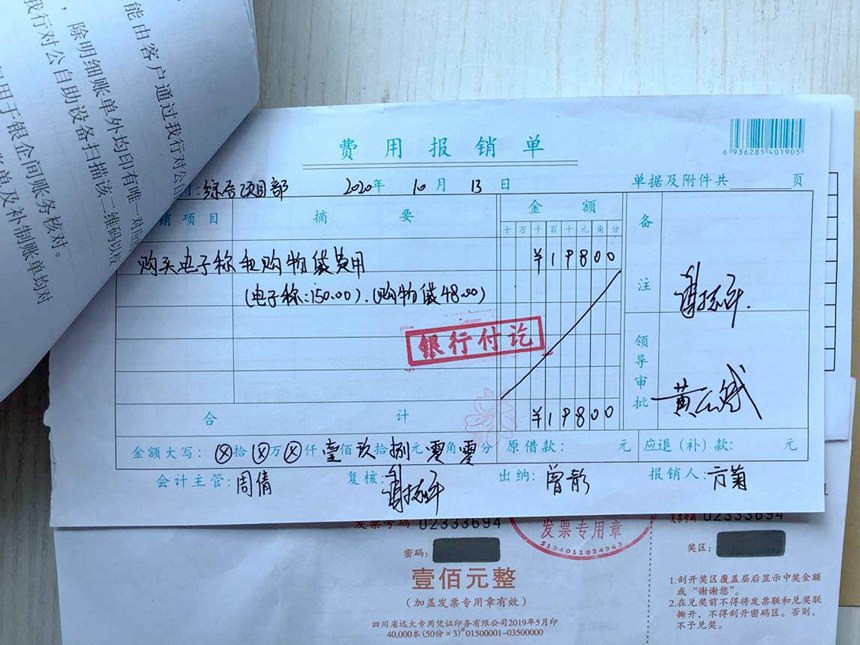 能由客户通过我行对公
除明细账单外均印有唯一对
我行对公自助设备扫描该二维码以
用于银企间账务核对。
单及补制账单均对
费用报销单
6 936281 401905
综合项目部 2020年 10月 13日 单据及附件共 页
项目 摘要 金额 备注
十万千百十元角分
购买电子称和购物袋费用 ¥19800
(电子称:150.00).(购物袋48.00)
银行付讫
领导审批
合计 ¥19800
金额大写: ⊗拾⊗万⊗仟壹佰玖拾捌元零角零分 原借款: 元 应退(补)款: 元
会计主管:周倩 复核: 出纳:曾彩 报销人:方菊
发票号码 02333694
02333694
发票专用章
密码:
奖区:
壹佰元整
(加盖发票专用章有效)
四川省远大专用凭证印务有限公司2019年5月印
40,000本(50份×3)01500001-03500000
1.刮开奖区覆盖层后显示中奖金额
或“谢谢您”。
2.在兑奖前不得将发票联和兑奖联
撕开,不得刮开密码区。否则,
不予兑奖。